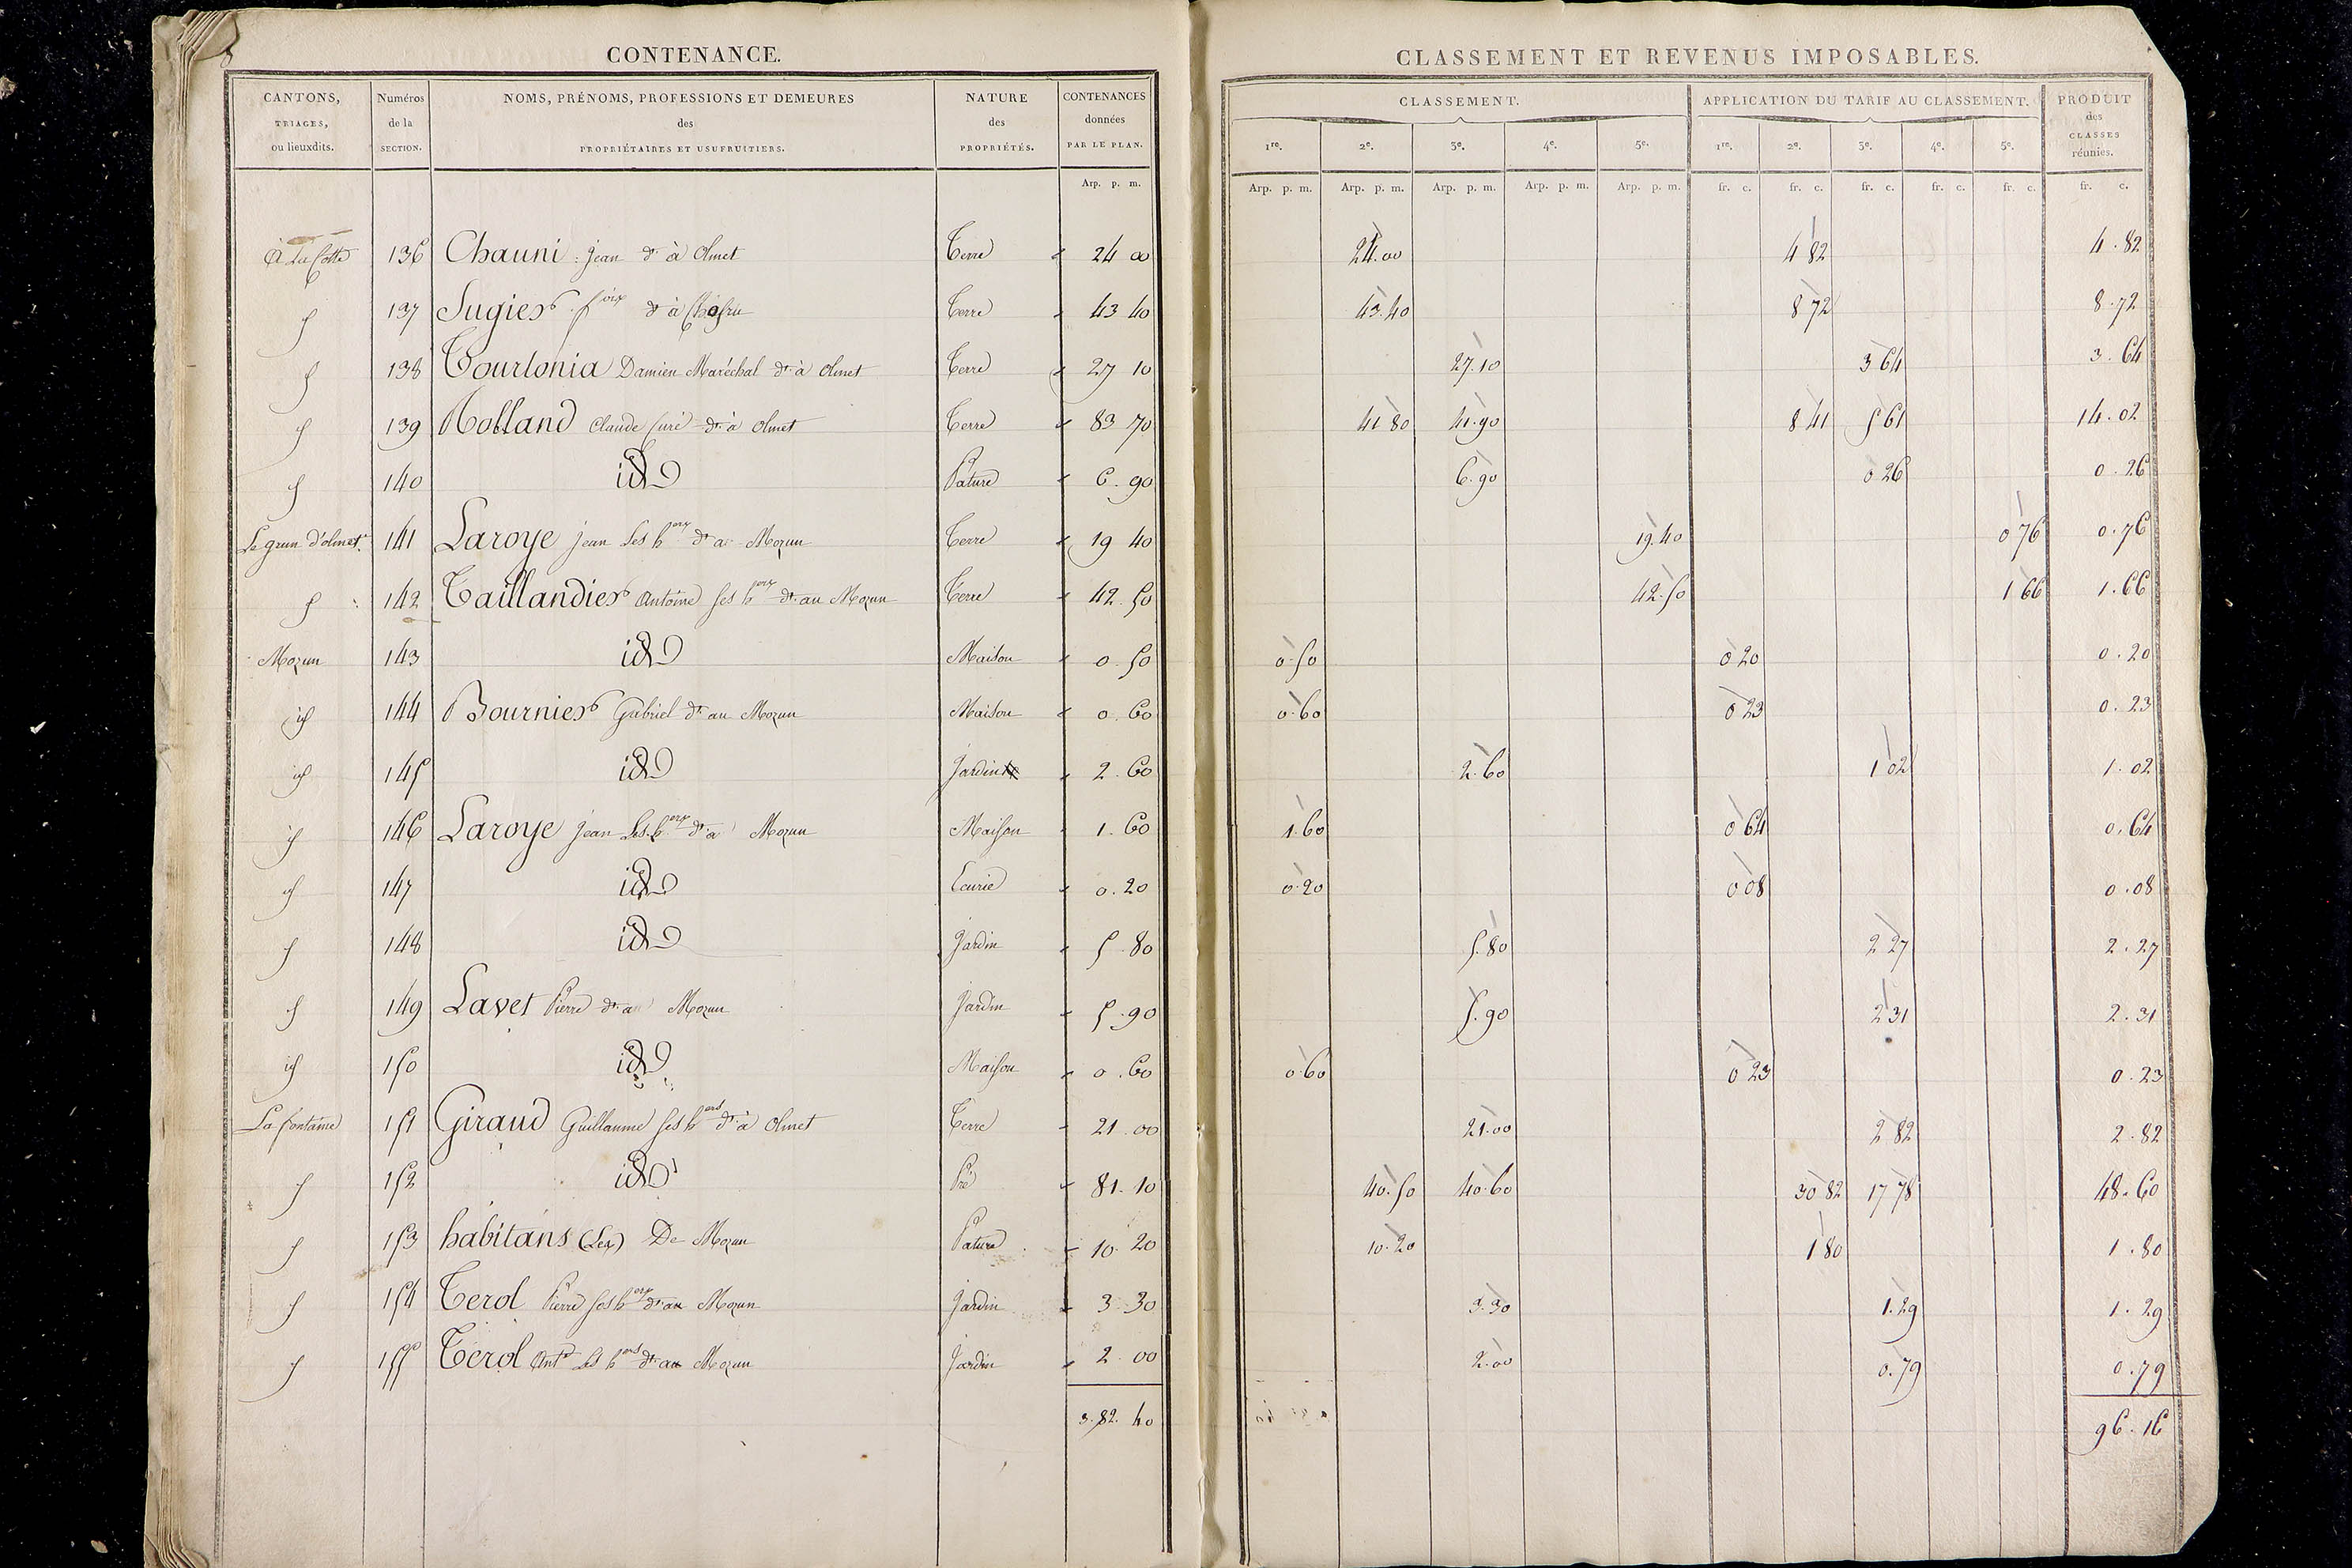 CONTENANCE.
CANTONS, TRIAGES, ou lieuxdits. Numéros de la SECTION. NOMS, PRÉNOMS, PROFESSIONS ET DEMEURES des PROPRIÉTAIRES ET USUFRUITIERS. NATURE des PROPRIÉTÉS. CONTENANCES données PAR LE PLAN.
Arp. p. m.
CLASSEMENT ET REVENUS IMPOSABLES.
CLASSEMENT. APPLICATION DU TARIF AU CLASSEMENT. PRODUIT des CLASSES réunies.
1re. 2e. 3e. 4e. 5e. 1re. 2e. 3e. 4e. 5e.
Arp. p. m. Arp. p. m. Arp. p. m. Arp. p. m. Arp. p. m. fr. c. fr. c. fr. c. fr. c. fr. c. fr. c.
A La Cotte 136 Chauni jean dt à Olmet Terre 24 00 24.00 4 82 4.82
id 137 Sugier dt à Terre 43 40 43.40 8 72 8.72
id 138 Tourlonia Damien Maréchal dt à Olmet Terre 27 10 27.10 3 64 3.64
id 139 Rolland Claude Curé dt à Olmet Terre 83 70 41 80 41.90 8 41 5 61 14.02
id 140 id Pature 6.90 6.90 0 26 0.26
Le grun d'olmet. 141 Laroye jean Ses hers dt au Mozun Terre 19 40 19.40 0 76 0.76
id 142 Taillandier Antoine ses hers dt au Mozun Terre 42.50 42.50 1 66 1.66
Mozun 143 id Maison 0.50 0.50 0 20 0.20
id 144 Bournier Gabriel dt au Mozun Maison 0.60 0.60 0 23 0.23
id 145 id Jardin 2.60 2.60 1 02 1.02
id 146 Laroye jean Ses hers dt à Mozun Maison 1.60 1.60 0 64 0.64
id 147 id Ecurie 0.20 0.20 0 08 0.08
id 148 id Jardin 5.80 5.80 2 27 2.27
id 149 Lavet Pierre dt au Mozun Jardin 5.90 5.90 2 31 2.31
id 150 id Maison 0.60 0.60 0 23 0.23
La fontaine 151 Giraud Guillaume ses hers dt à Olmet Terre 21.00 21.00 2 82 2.82
id 152 id Pré 81.10 40.50 40.60 30 82 17 78 48.60
id 153 habitans (Les) De Mozun Pature 10.20 10.20 1 80 1.80
id 154 Terol Pierre ses hers dt au Mozun Jardin 3.30 3.30 1.29 1.29
id 155 Terol Ante Ses hers dt au Mozun Jardin 2.00 2.00 0.79 0.79
3.82.40 96.16